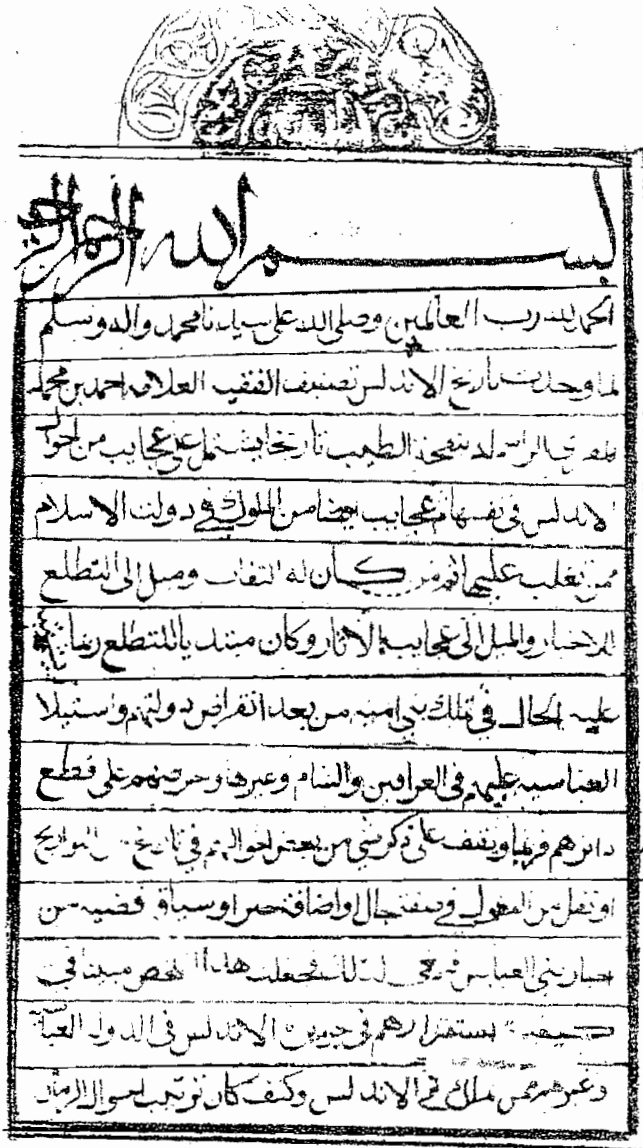 بسم الله الرحمن الرحيم
الحمد لله رب العالمين وصلى الله على سيدنا محمد واله وسلم
لما وجدت تاريخ الاندلس تصنيف الفقيه العلامه احمد بن محمد
بنفحة الطيب تاريخا يشتمل على عجايب من احوال
الاندلس في نفسها ثم عجايب ايضا من الملوك في دولت الاسلام
ممن تغلب عليها ثم من كان له التفات وميل الى التطلع
للاخبار والميل الى عجايب الاثار وكان مبتديا للتطلع ربما
عليه الحال في تملك بني اميه من بعد انقراض دولتهم واستيلا
العباسيه عليهم في العراقين والشام وغيرها وحرصهم على قطع
دابرهم فربما ويقف على ذكر شي من بعض احوالهم في تاريخ من التواريخ
او نقل من المقول في صفة حال او اضافة خبر او سياق قضيه من
اخبار بني العباس لذلك فجعلت هذا الملخص مبتدا في
استقرارهم في جزيرة الاندلس في الدولة العباسية
وغيرهم ممن ملك في الاندلس وكيف كان ترتيب احوال الزمان